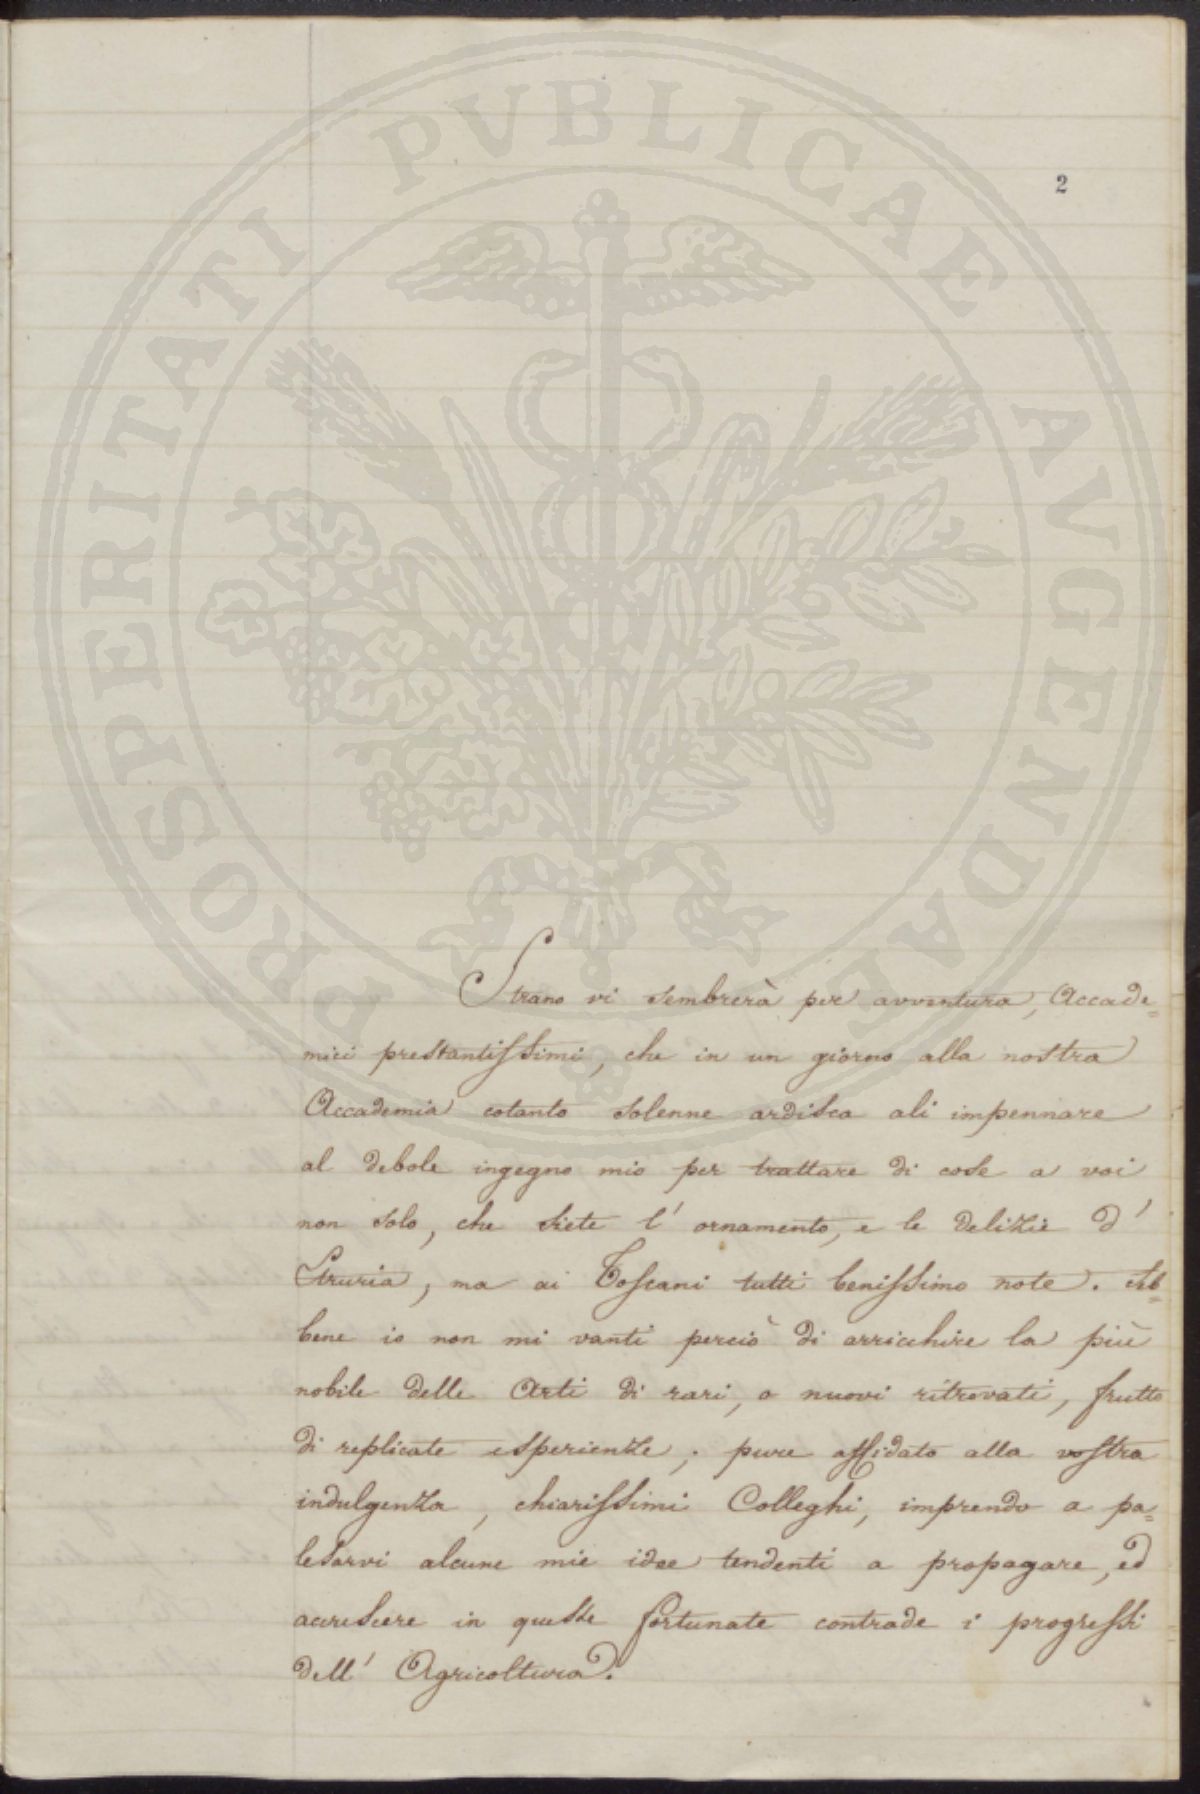 PROSPERITATI PVBLICAE AVGENDAE
2
Strano vi sembrerà per avventura, Accade=
mici prestantissimi, che in un giorno alla nostra
Accademia cotanto solenne ardisca ali impennare
al debole ingegno mio per trattare di cose a voi
non solo, che siete l' ornamento, e le delizie d'
Etruria, ma ai Toscani tutti benissimo note. Eb=
bene io non mi vanti perciò di arricchire la più
nobile delle Arti di rari, o nuovi ritrovati, frutto
di replicate esperienze; pure affidato alla vostra
indulgenza, chiarissimi Colleghi, imprendo a pa=
lesarvi alcune mie idee tendenti a propagare, ed
accrescere in queste fortunate contrade i progressi
dell' Agricoltura.